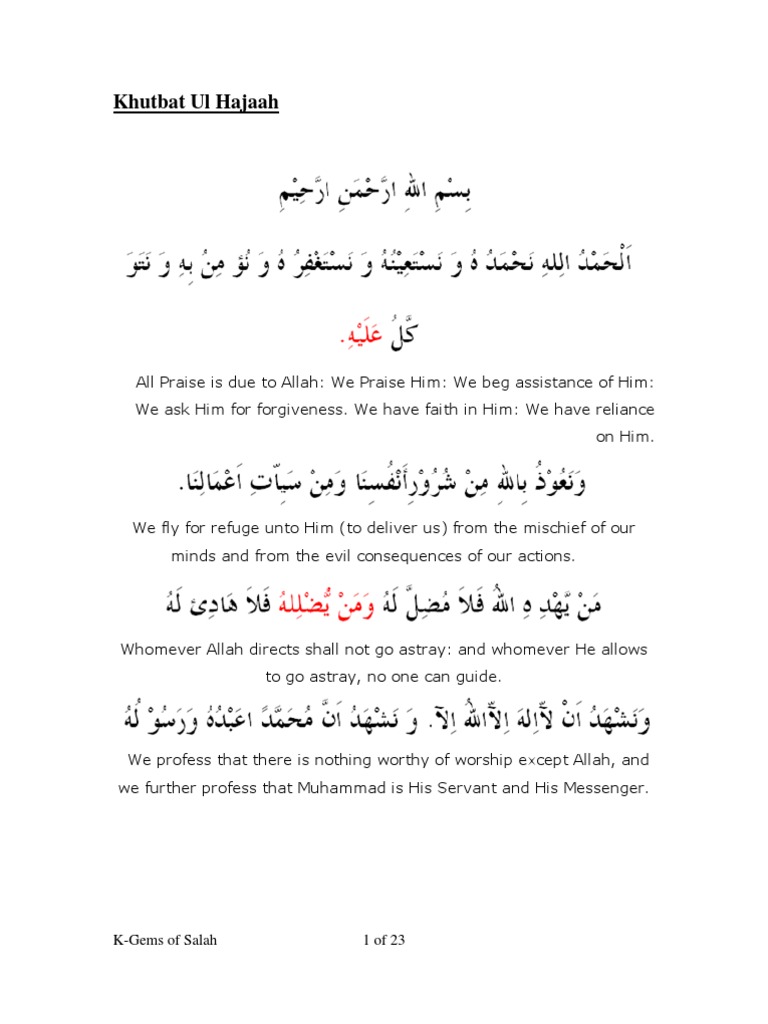 Khutbat Ul Hajaah
بِسْمِ اللهِ ارَّحْمَنِ ارَّحِيْمِ
اَلْحَمْدُ الِلهِ نَحْمَدُ هُ وَ نَسْتَعِيْنُهُ وَ نَسْتَغْفِرُ هُ وَ نُؤ مِنُ بِهِ وَ نَتَوَ
كَّلُ عَلَيْهِ.
All Praise is due to Allah: We Praise Him: We beg assistance of Him:
We ask Him for forgiveness. We have faith in Him: We have reliance
on Him.
وَنَعُوْذُ بِاللهِ مِنْ شُرُوْرِأَنْفُسِنَا وَمِنْ سَيِاّتِ اَعْمَالِنَا.
We fly for refuge unto Him (to deliver us) from the mischief of our
minds and from the evil consequences of our actions.
مَنْ يَّهْدِ هِ اللهُ فَلاَ مُضِلَّ لَهُ وَمَنْ يُّضْلِلهُ فَلاَ هَادِئ لَهُ
Whomever Allah directs shall not go astray: and whomever He allows
to go astray, no one can guide.
وَنَشْهَدُ اَنْ لآّاِلهَ اِلاّاللهُ اِلآ. وَ نَشْهَدُ اَنَّ مُحَمَّدً اعَبْدُهُ وَرَسُوْ لُهُ
We profess that there is nothing worthy of worship except Allah, and
we further profess that Muhammad is His Servant and His Messenger.
K-Gems of Salah 1 of 23